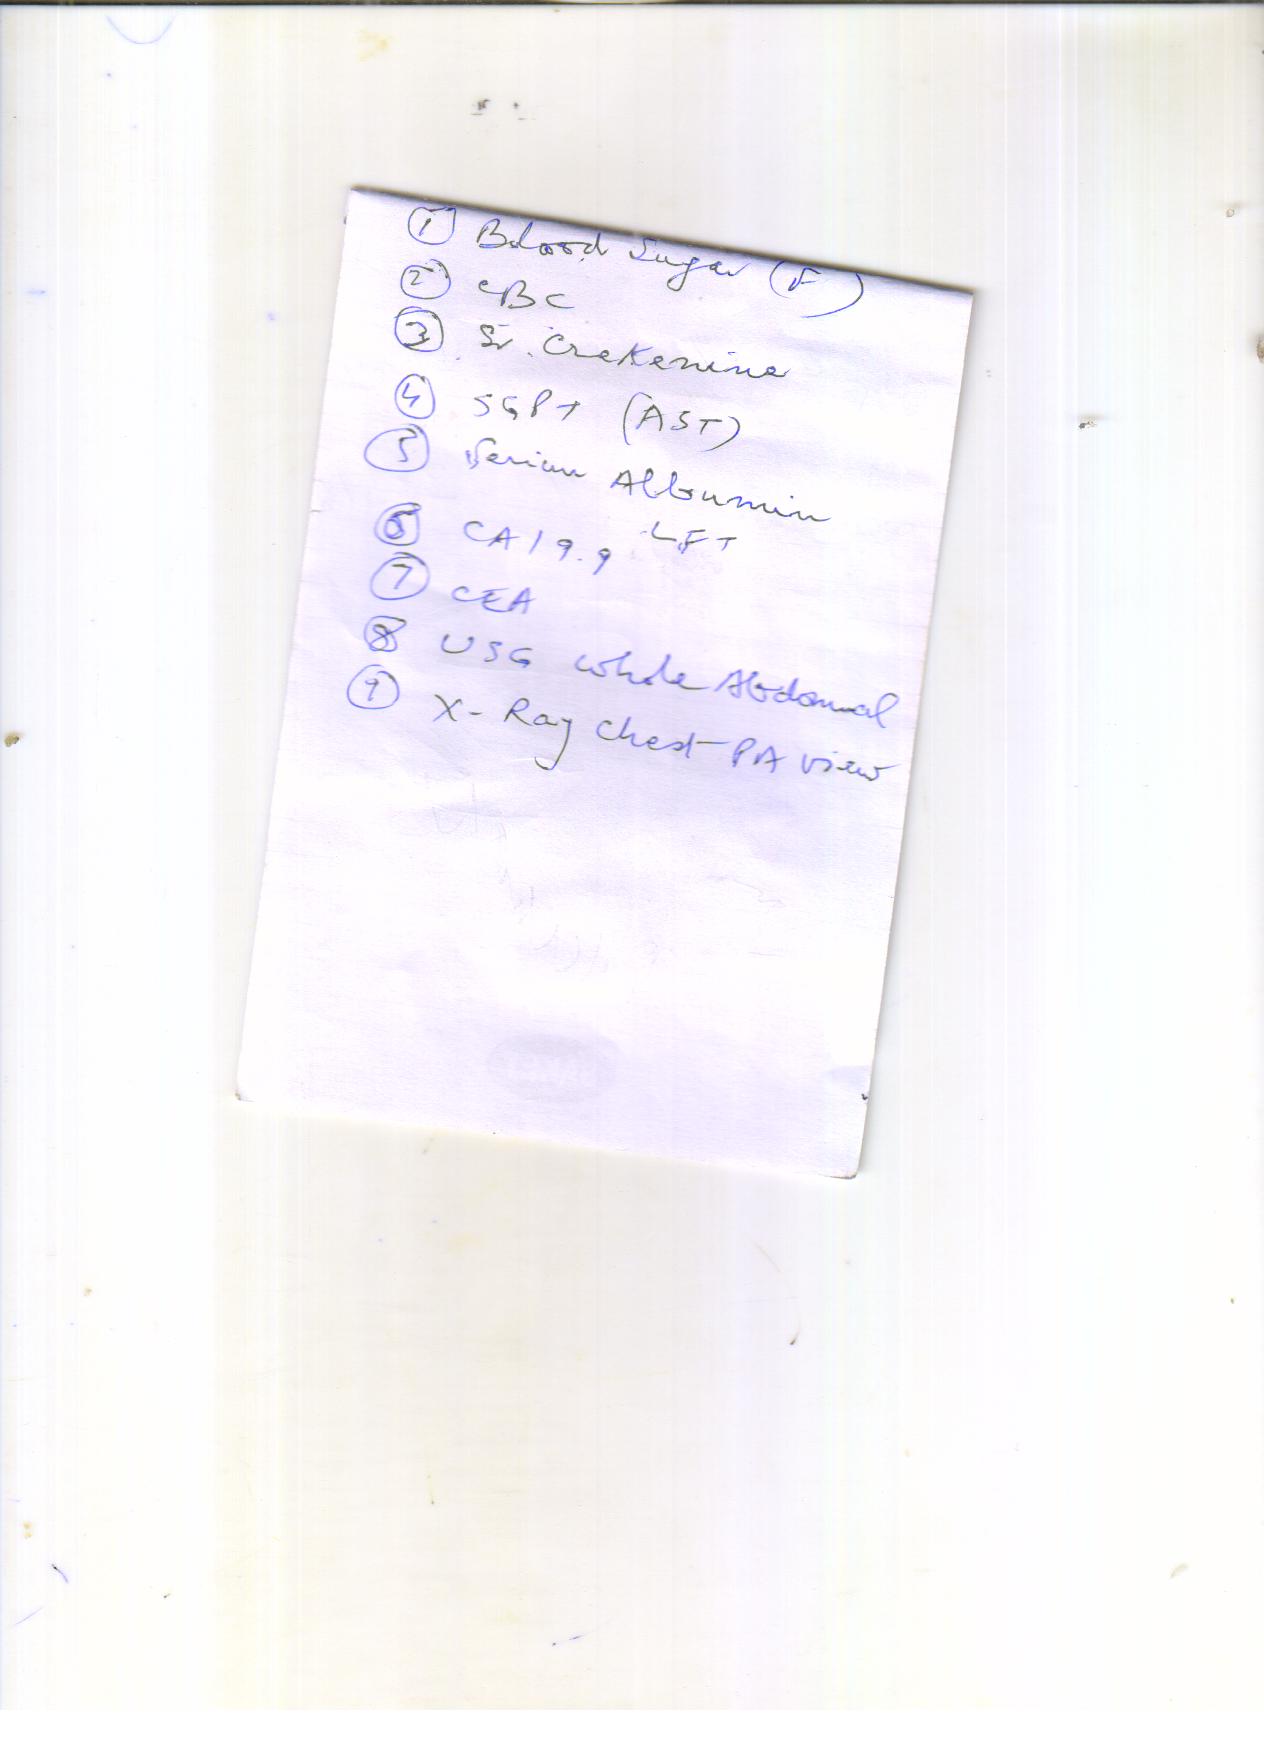 ① Blood Sugar (F)
② CBC
③ Sr. Createnine
④ SGPT (AST)
⑤ Serium Albumin
⑥ CA19.9 LFT
⑦ CEA
⑧ USG Whole Abdomal
⑨ X-Ray Chest PA view